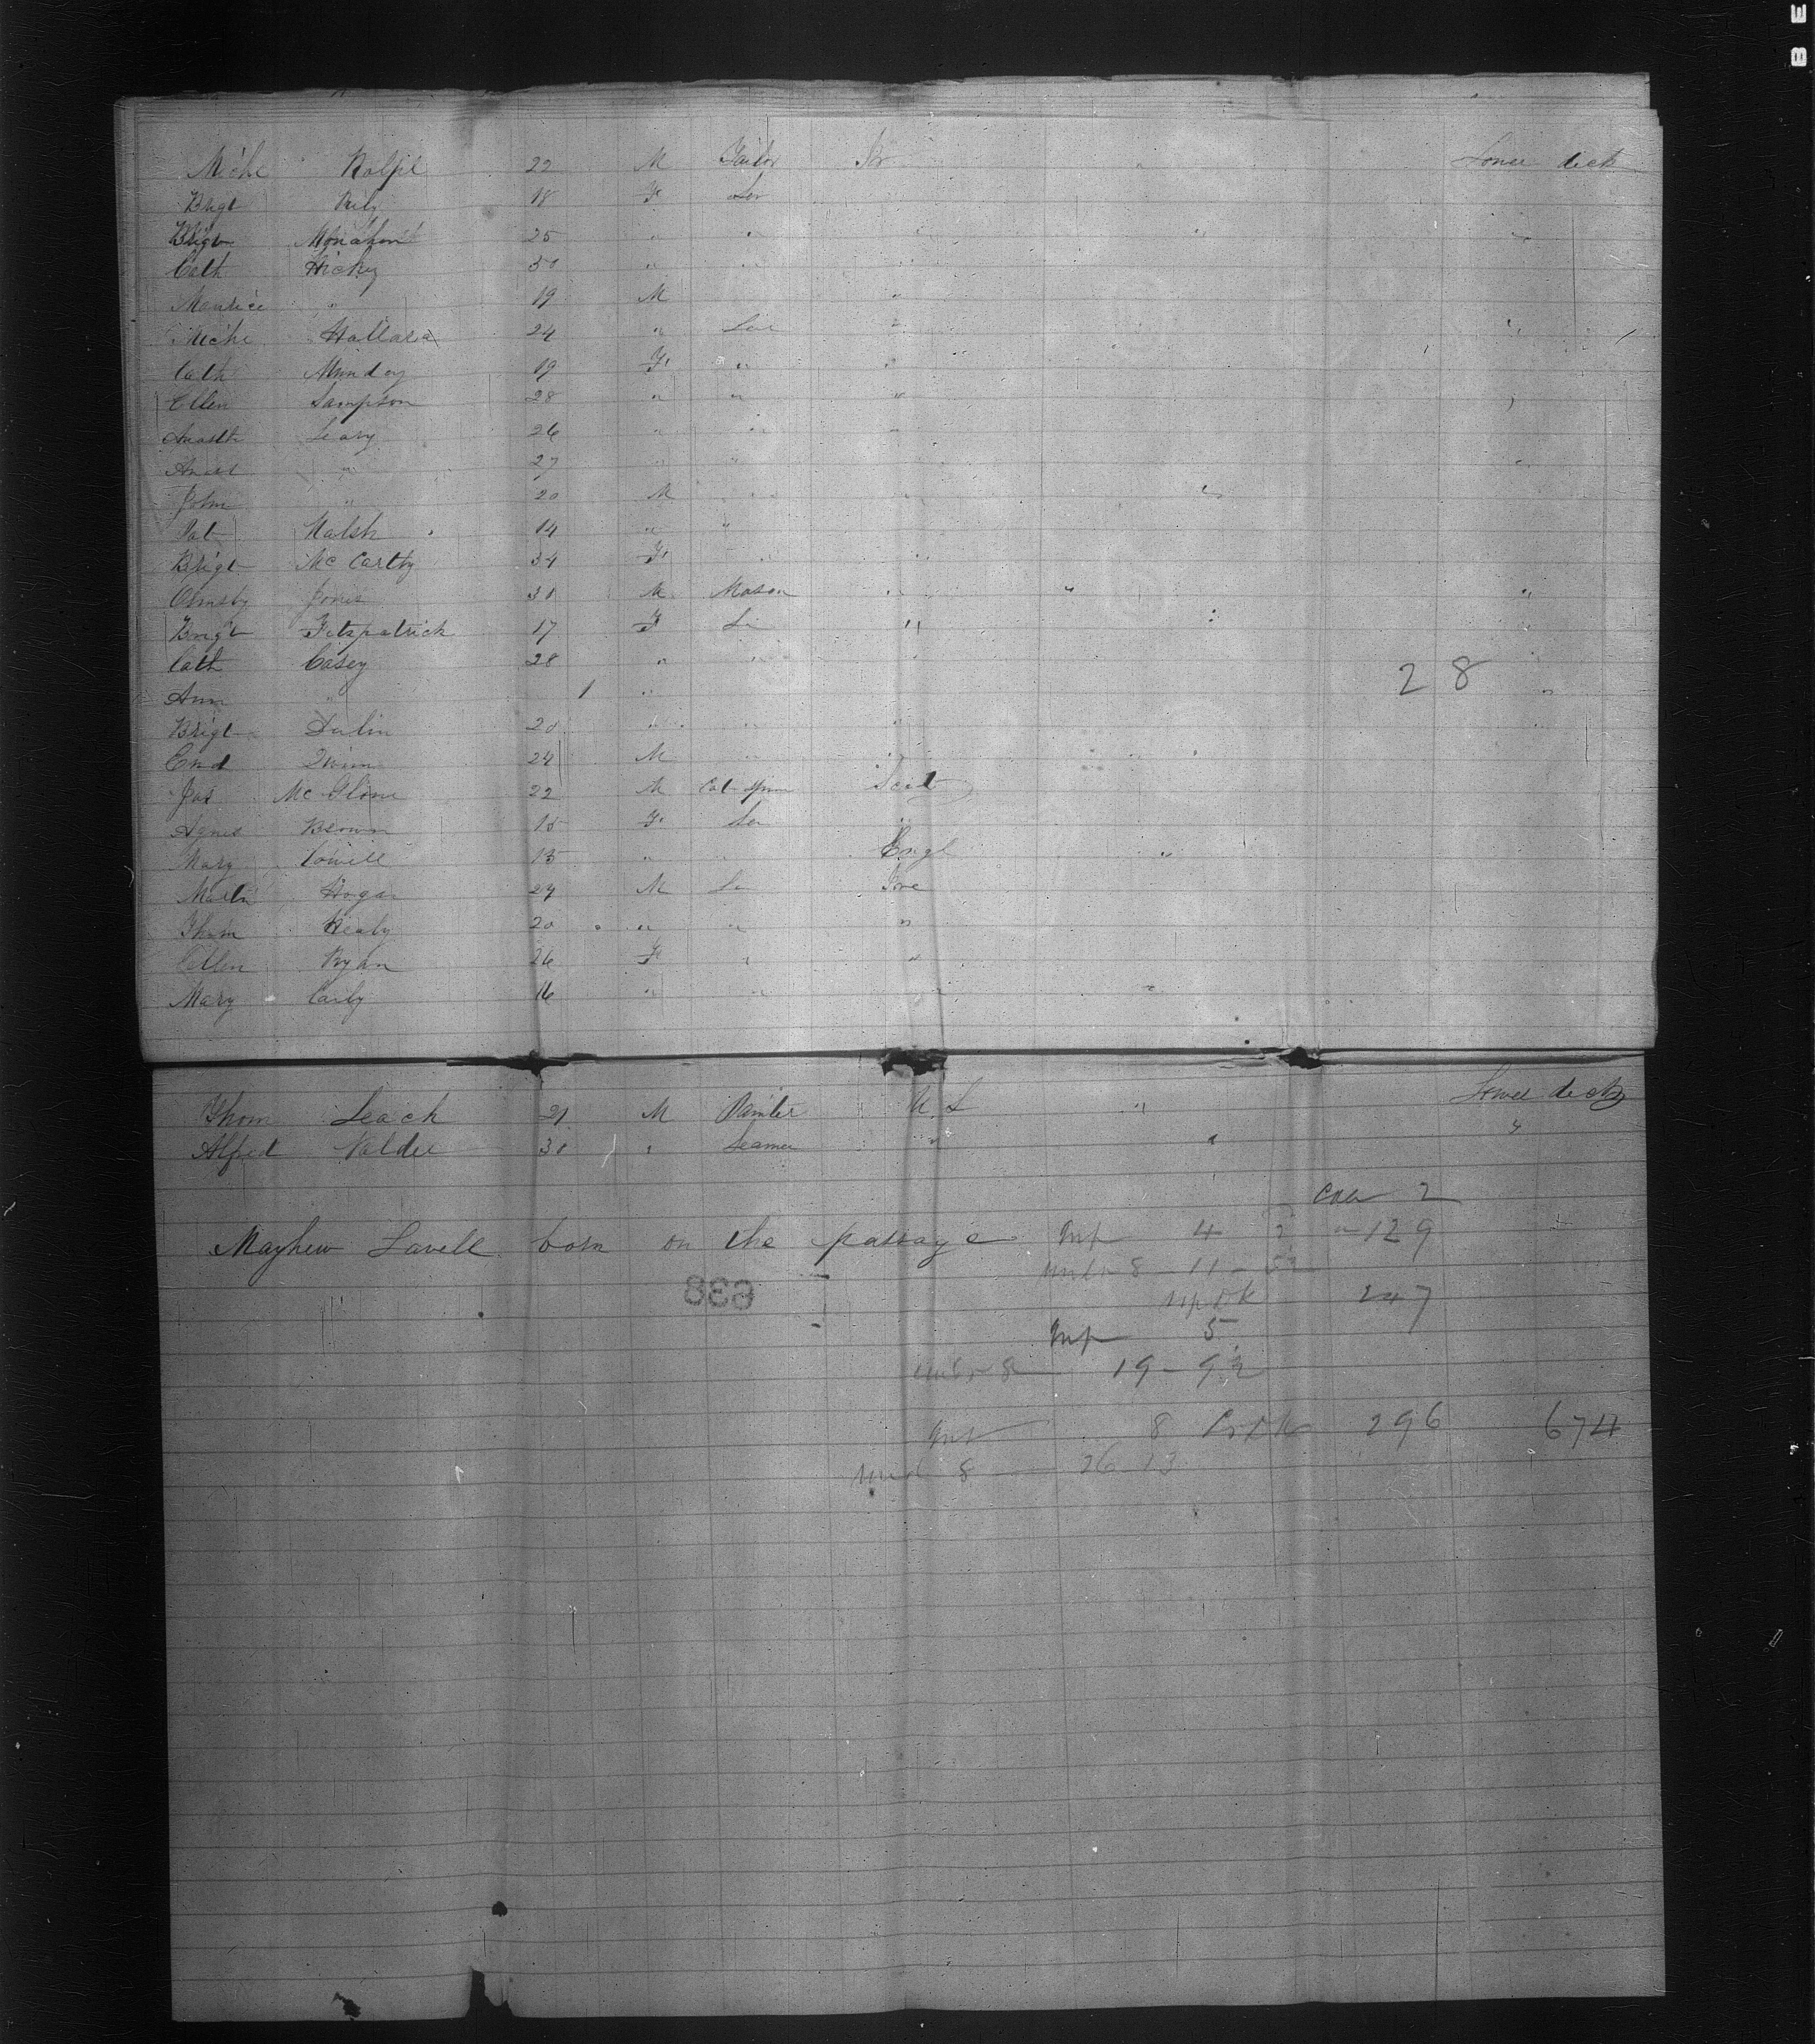 Miche Rolfe 22 M Tailor Ir " Lower deck
Brigt Rily 18 F Ser
Brigt Monahan 25 " " " " "
Cath Hickey 30 " " "
Maurice " 19 M "
Miche Hallara 24 " Lab " "
Cath Munday 19 F " "
Ellen Sampson 28 " " "
Anasth Leary 26 " " "
Anast " 27 " " "
John " 20 M " " "
Pat Walsh 14 " "
Brigt McCarthy 34 F " "
Ormsby Jones 30 M Mason " " "
Brigt Fitzpatrick 17 F " " "
Cath Casey 28 " " " "
Ann " 1 " 28 "
Brigt Dulin 20 " " " "
End Quinn 24 M " "
Jas McGlone 22 M Cot Spin Scot
Agnes Brown 15 F Ser "
Mary Powell 15 " " Engl "
Martn Hogan 24 M La Ire
Thom Healy 20 " " "
Ellen Ryan 26 F " "
Mary Carly 16 " " " "
Thom Leach 21 M Painter U.S " Lower deck
Alfred Valdee 30 " Seaman " " "
2
Mayhew Lavell born on the passage Inf 4 2 " 129
und 8 - 11 -
638
up Dk 247
Inf 5
und 8 19 - 9
Inf 8 296 674
und 8 26 13